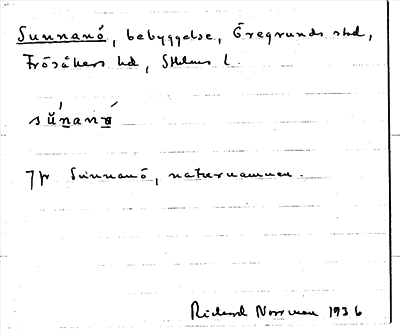 Sunnanö, bebyggelse, Öregrunds skd,
Frösåkers hd, Sthlms l.
sŭ́nanǿ
Jfr Sunnanö, naturnamnen.
Richard Norrman 1936